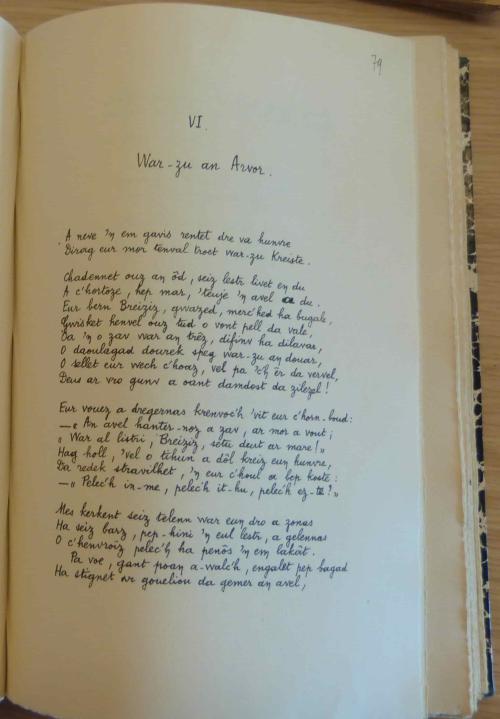 79
VI.
War-zu an Arvor.
A neve 'n em gavis rentet dre va hunvre
Dirag eur mor tenval troet war-zu Kreiste.
Chadennet ouz an ôd, seiz lestr livet en du
A c'hortoze, hep mar, 'teuje 'n avel a du.
Eur bern Breiziz, gwazed, merc'hed ha bugale,
Gwisket henvel ouz tud o vont pell da vale,
Oa 'n o zav war an trêz, difinv ha dilavar,
O daoulagad dourek speg war-zu an douar,
O sellet eur wech c'hoaz, vel pa 'c'h êr da vervel,
Deus ar vro gunv a oant damdost da zilezel!
Eur vouez a dregernas krenvoc'h 'vit eur c'horn-boud:
—« An avel hanter-noz a zav, ar mor a vout;
« War al listri, Breiziz, setu deut ar mare! »
Hag holl, 'vel o tihun a dôl kreiz eun hunvre,
Da redek stravilhet, 'n eur c'houl a bep koste:
—« Pelec'h in-me, pelec'h it-hu, pelec'h ez-te? »
Mes kerkent seiz telenn war eun dro a zonas
Ha seiz barz, pep-hini 'n eul lestr, a gelennas
O c'henvroïz pelec'h ha penôs 'n em lakât.
Pa voe, gant poan a-walc'h, engalet pep bagad
Ha stignet ar goueliou da gemer an avel,